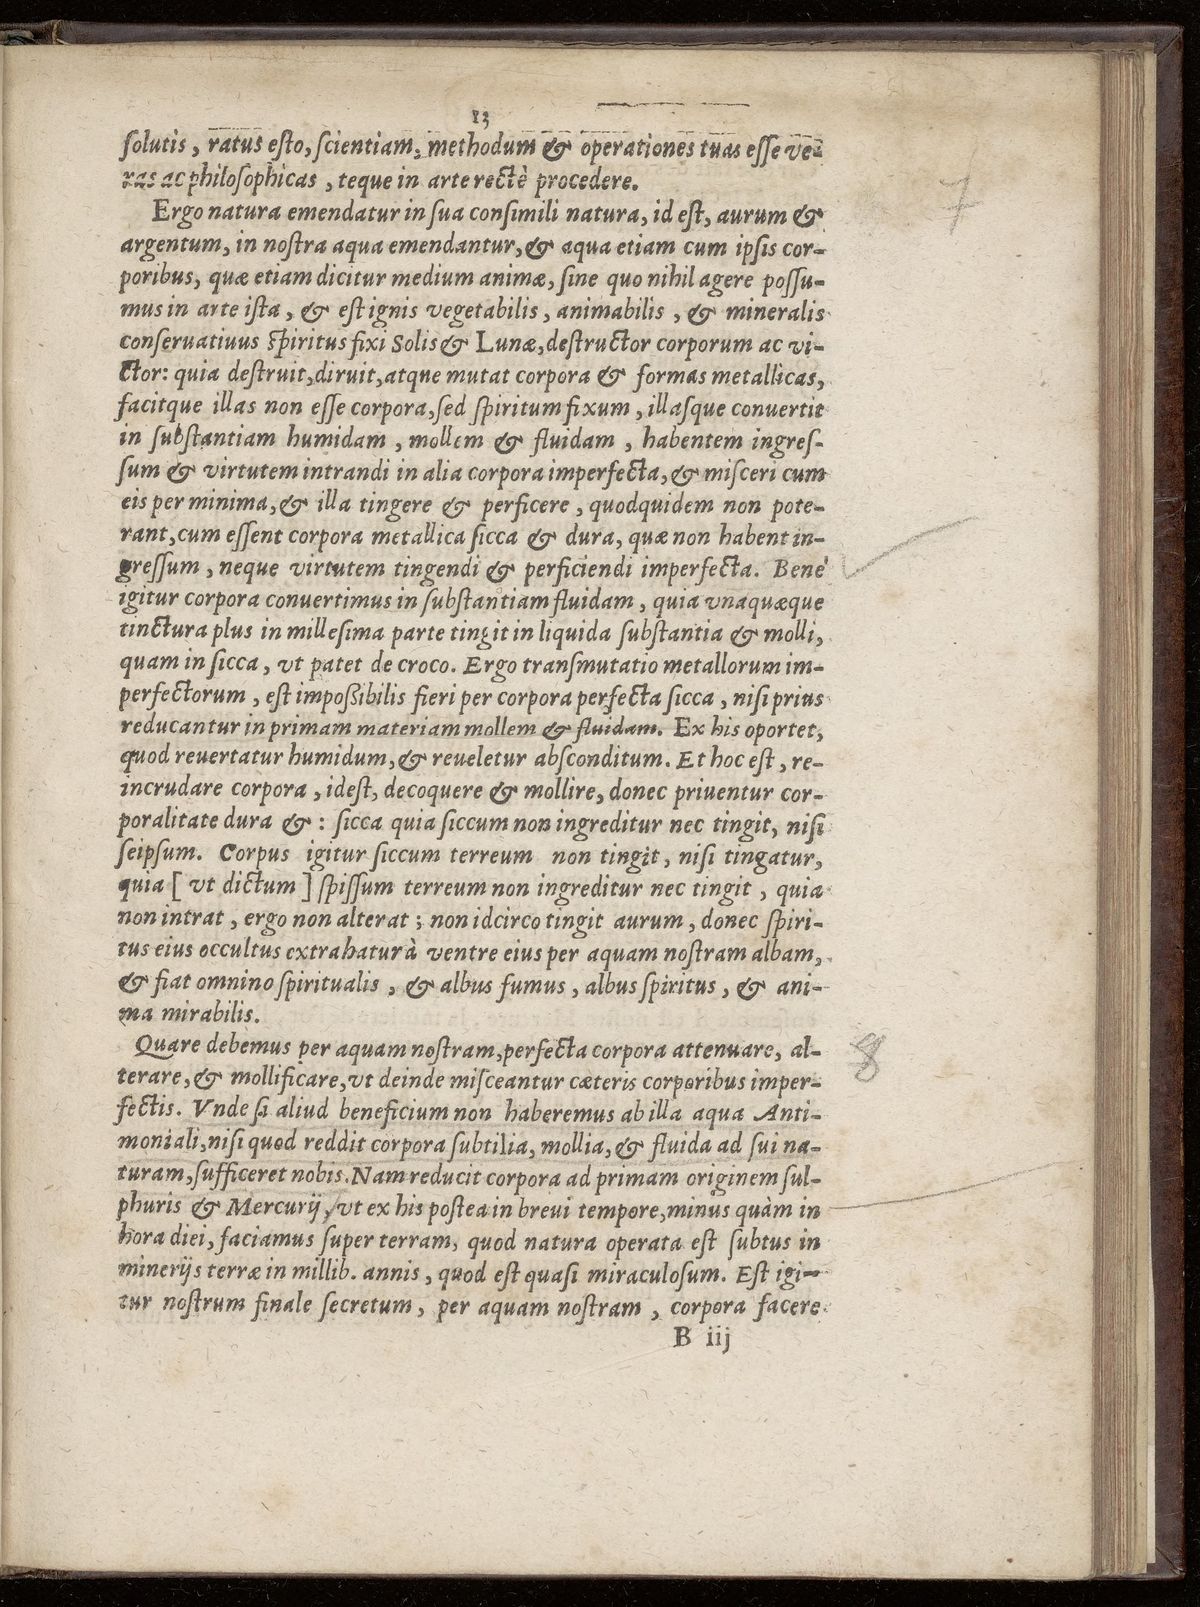 13
solutis, ratus esto, scientiam, methodum & operationes tuas esse ve-
ras ac philosophicas, teque in arte rectè procedere.
Ergo natura emendatur in sua consimili natura, id est, aurum &
argentum, in nostra aqua emendantur, & aqua etiam cum ipsis cor-
poribus, quæ etiam dicitur medium animæ, sine quo nihil agere possu-
mus in arte ista, & est ignis vegetabilis, animabilis, & mineralis
conseruatiuus spiritus fixi Solis & Lunæ, destructor corporum ac vi-
ctor: quia destruit, diruit, atqne mutat corpora & formas metallicas,
facitque illas non esse corpora, sed spiritum fixum, illasque conuertit
in substantiam humidam, mollem & fluidam, habentem ingres-
sum & virtutem intrandi in alia corpora imperfecta, & misceri cum
eis per minima, & illa tingere & perficere, quodquidem non pote-
rant, cum essent corpora metallica sicca & dura, quæ non habent in-
gressum, neque virtutem tingendi & perficiendi imperfecta. Bene
igitur corpora conuertimus in substantiam fluidam, quia vnaquæque
tinctura plus in millesima parte tingit in liquida substantia & molli,
quam in sicca, vt patet de croco. Ergo transmutatio metallorum im-
perfectorum, est impoßibilis fieri per corpora perfecta sicca, nisi prius
reducantur in primam materiam mollem & fluidam. Ex his oportet,
quod reuertatur humidum, & reueletur absconditum. Et hoc est, re-
incrudare corpora, idest, decoquere & mollire, donec priuentur cor-
poralitate dura & : sicca quia siccum non ingreditur nec tingit, nisi
seipsum. Corpus igitur siccum terreum non tingit, nisi tingatur,
quia [ vt dictum ] spissum terreum non ingreditur nec tingit, quia
non intrat, ergo non alterat; non idcirco tingit aurum, donec spiri-
tus eius occultus extrahatur à ventre eius per aquam nostram albam,
& fiat omnino spiritualis, & albus fumus, albus spiritus, & ani-
ma mirabilis.
Quare debemus per aquam nostram, perfecta corpora attenuare, al-
terare, & mollificare, vt deinde misceantur cæteris corporibus imper-
fectis. Vnde si aliud beneficium non haberemus ab illa aqua Anti-
moniali, nisi quod reddit corpora subtilia, mollia, & fluida ad sui na-
turam, sufficeret nobis. Nam reducit corpora ad primam originem sul-
phuris & Mercurij, vt ex his postea in breui tempore, minus quàm in
hora diei, faciamus super terram, quod natura operata est subtus in
minerijs terræ in millib. annis, quod est quasi miraculosum. Est igi-
tur nostrum finale secretum, per aquam nostram, corpora facere
B iij
7
8